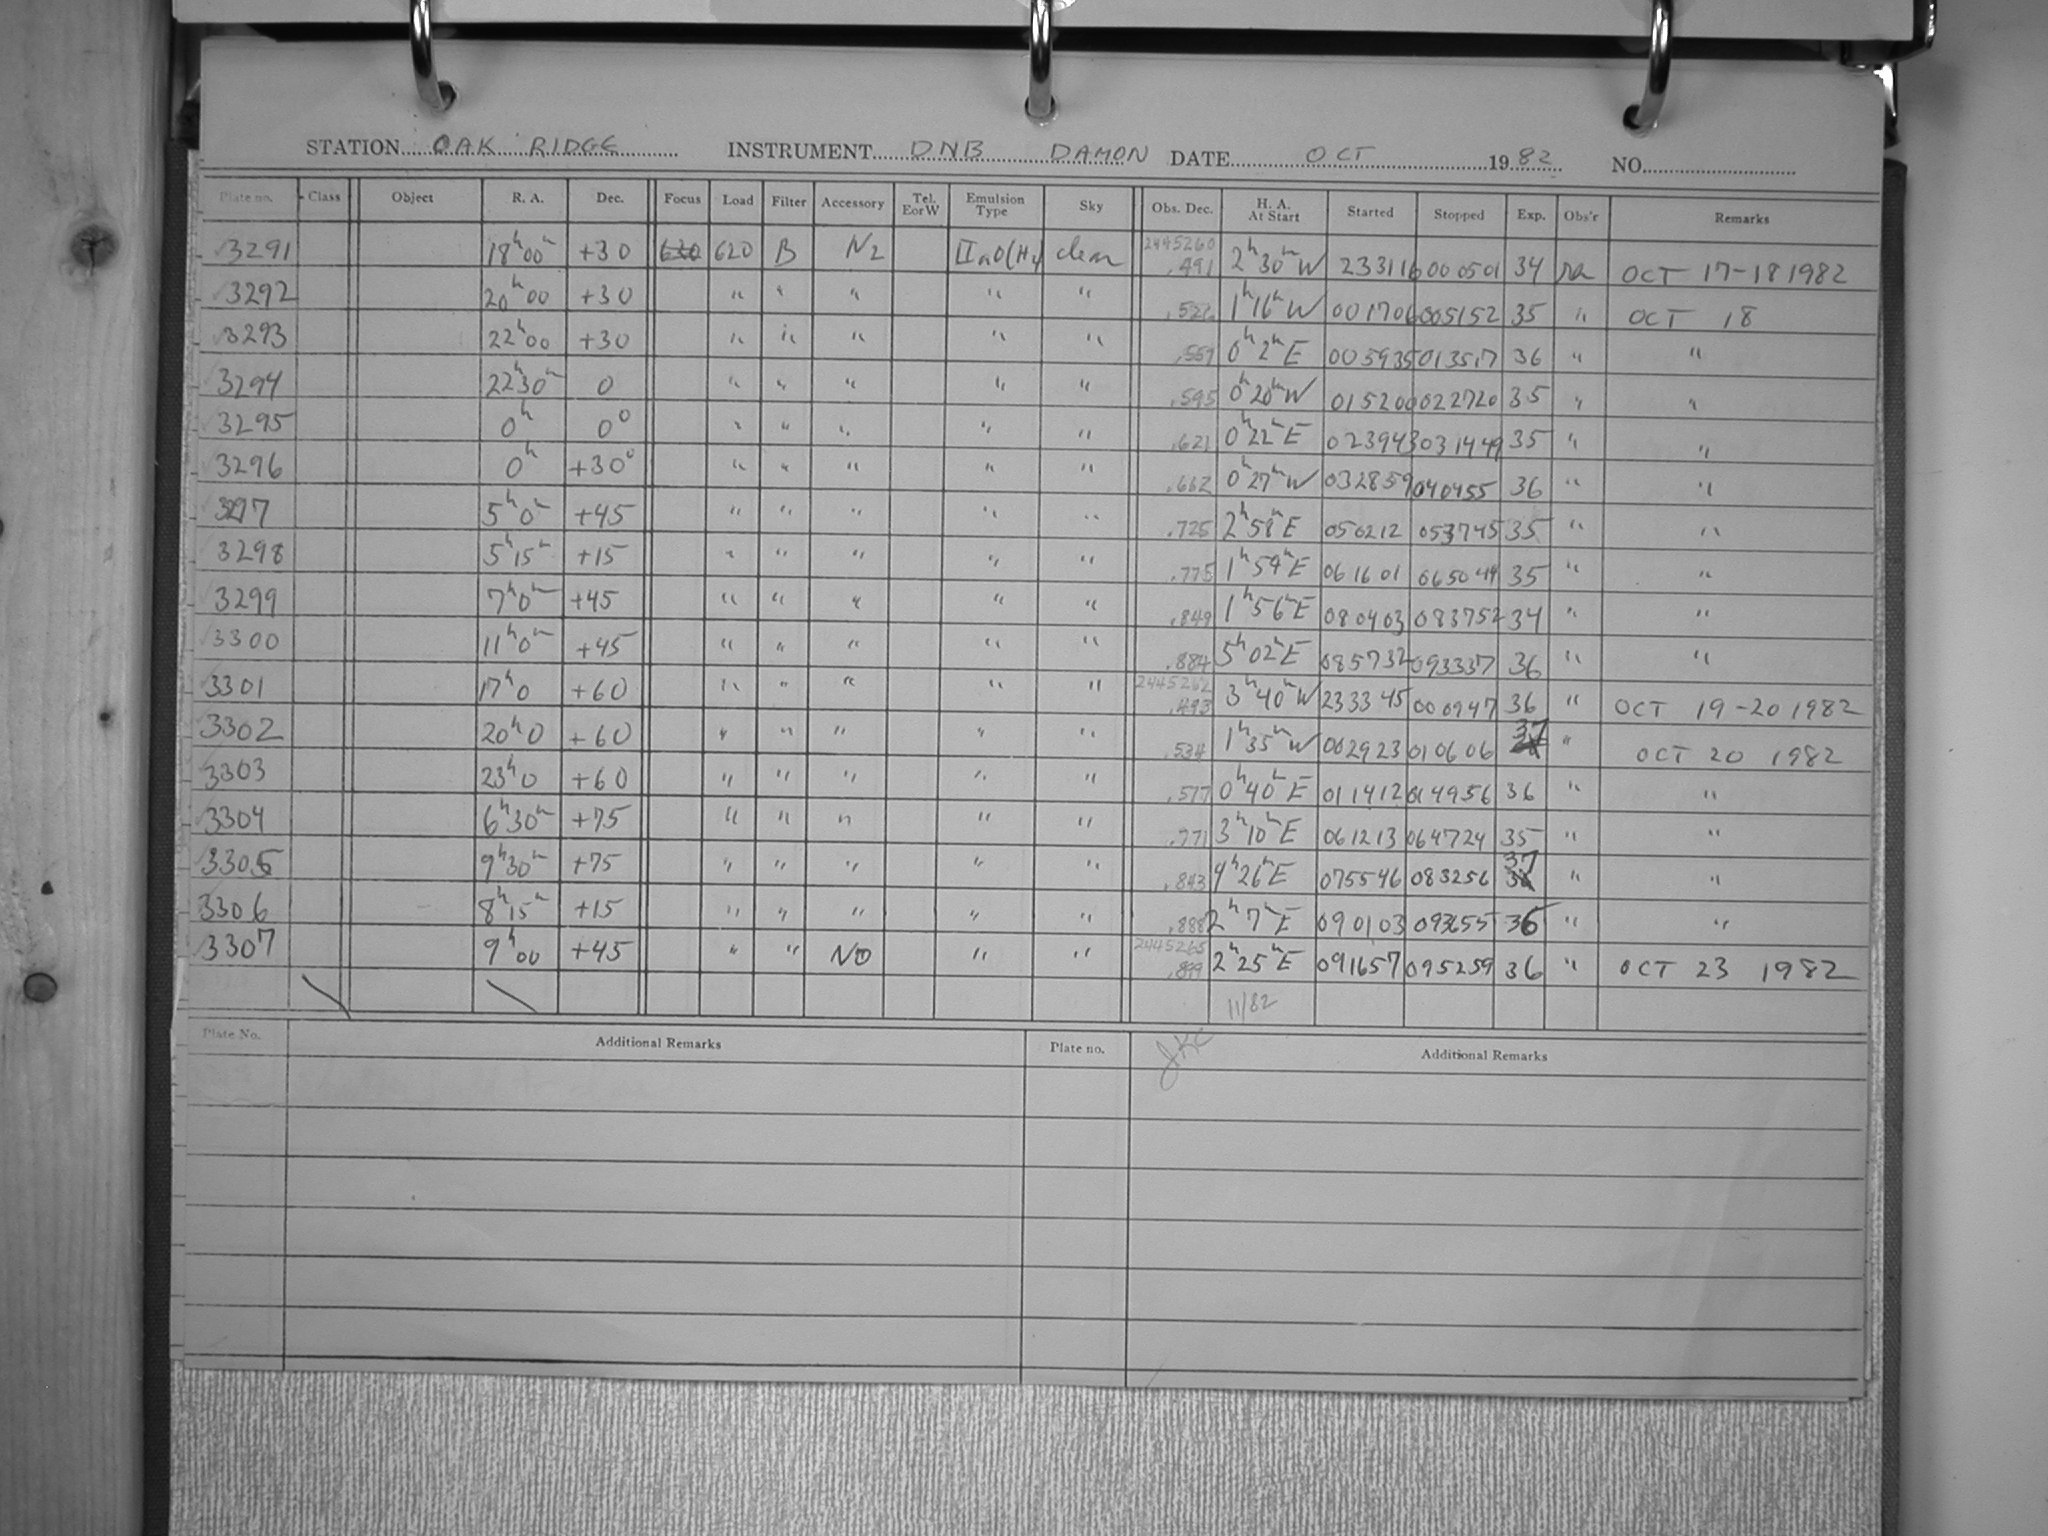 STATION OAK RIDGE INSTRUMENT DNB DAMON DATE OCT 1982 NO.
Plate no. Class Object R. A. Dec. Focus Load Filter Accessory Tel. EorW Emulsion Type Sky Obs. Dec. H. A. At Start Started Stopped Exp. Obs'r Remarks
3291 18h00m +30 620 B N2 IIaO(H2) clear 2445260 .491 2h30mW 233116 000501 34 OCT 17-18 1982
3292 20h00 +30 " " " " " 1h16mW 001706 005152 35 " OCT 18
3293 22h00 +30 " " " " " 0h2mE 005935 013517 36 " "
3294 22h30m 0 " " " " " .595 0h20mW 015200 022720 35 " "
3295 0h 0° " " " " " .621 0h22mE 023943 031449 35 " "
3296 0h +30° " " " " " .662 0h27mW 032859 040455 36 " "
3297 5h0m +45 " " " " " .725 2h58mE 050212 053745 35 " "
3298 5h15m +15 " " " " " .775 1h59mE 061601 065049 35 " "
3299 7h0m +45 " " " " " .849 1h56mE 080403 083752 34 " "
3300 11h0m +45 " " " " " .884 5h02mE 085732 093337 36 " "
3301 17h0 +60 " " " " " 2445262 .493 3h40mW 233345 000947 36 " OCT 19-20 1982
3302 20h0 +60 " " " " " .534 1h35mW 002923 010606 37 " OCT 20 1982
3303 23h0 +60 " " " " " .577 0h40mE 011412 014956 36 " "
3304 6h30m +75 " " " " " .771 3h10mE 061213 064724 35 " "
3305 9h30m +75 " " " " " .843 4h26mE 075546 083256 37 " "
3306 8h15m +15 " " " " " .888 2h7mE 090103 093655 36 " "
3307 9h00 +45 " " NO " " 2445265 .899 2h25mE 091657 095259 36 " OCT 23 1982
11/82
Plate No. Additional Remarks Plate no. JKC Additional Remarks